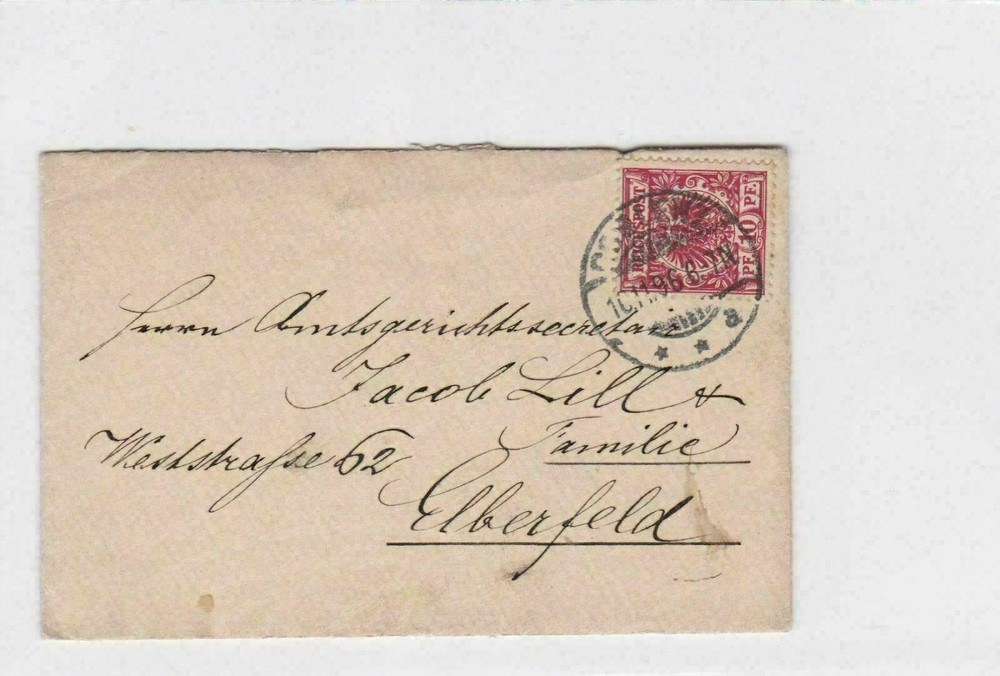 REICHSPOST
PF. 10 PF.
11.96 8-
a
Herrn Amtsgerichtssecretair
Jacob Lill &
Familie
Weststrasse 62
Elberfeld